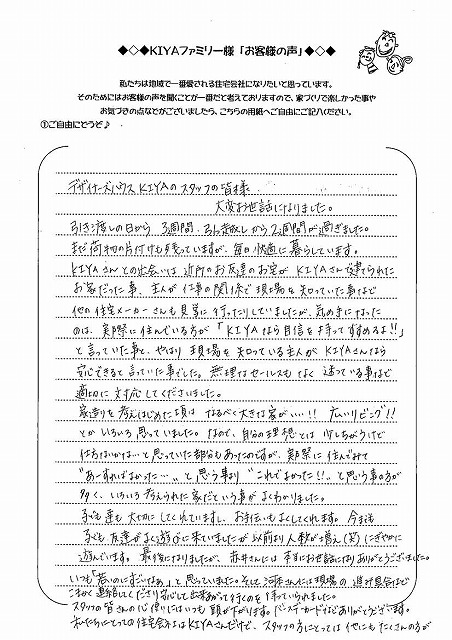 ◆◇◆KIYAファミリー様「お客様の声」◆◇◆
私たちは地域で一番愛される住宅会社になりたいと思っています。
そのためにはお客様の声を聞くことが一番だと考えておりますので、家づくりで楽しかった事や
お気づきの点などがございましたら、こちらの用紙へご自由にご記入ください。
①ご自由にどうぞ♪
デザイナーズハウス KIYAのスタッフの皆様
大変お世話になりました。
引き渡しの日から 3週間、引越しから2週間が過ぎました。
まだ荷物の片付けも残っていますが、毎日快適に暮らしています。
KIYAさんとの出会いは 近所のお友達のお宅が KIYAさんで建てられた
お宅だった事、主人が仕事の関係で現場を知っていた事など
他の住宅メーカーさんも見学に行ったりしていましたが、決め手になった
のは、実際に住んでいる方が「KIYAなら自信を持ってすすめるよ!!」
と言っていた事と、やはり 現場を知っている主人が KIYAさんなら
安心できると言っていた事でした。無理なセールスもなく 迷っている事など
適切に対応してくださいました。
家造りを考えはじめた頃は なるべく大きな家が…!! 広いリビング!!
とか いろいろ思っていました。なので、自分の理想とは 少しちがうけど
仕方ないかな…と思っていた部分もあったのですが、実際に住んでみて
"あーすればよかった…"と思う事より "これでよかった!!"と思う事の方が
多く、いろいろ考えられた家だという事がよくわかりました。
子ども達も大切にしてくれていますし、お手伝いもよくしてくれます。今までも
子ども友達がよく遊びに来ていましたが以前より人数が増え(笑)にぎやかに
遊んでいます。最後になりましたが、赤井さんには本当にお世話になりありがとうございました。
いつも「若いのにすごいなぁ」と思っていました。そして河原さんには現場の進み具合など
こまめに連絡してくださり安心して出来あがって行くのを待っていられました。
スタッフの皆さんの心使いにはいつも頭が下がります。バースデーカードなどありがとうございます。
私たちにとっての住宅会社はKIYAさんだけど、スタッフの方にとっては他にもたくさんの方が